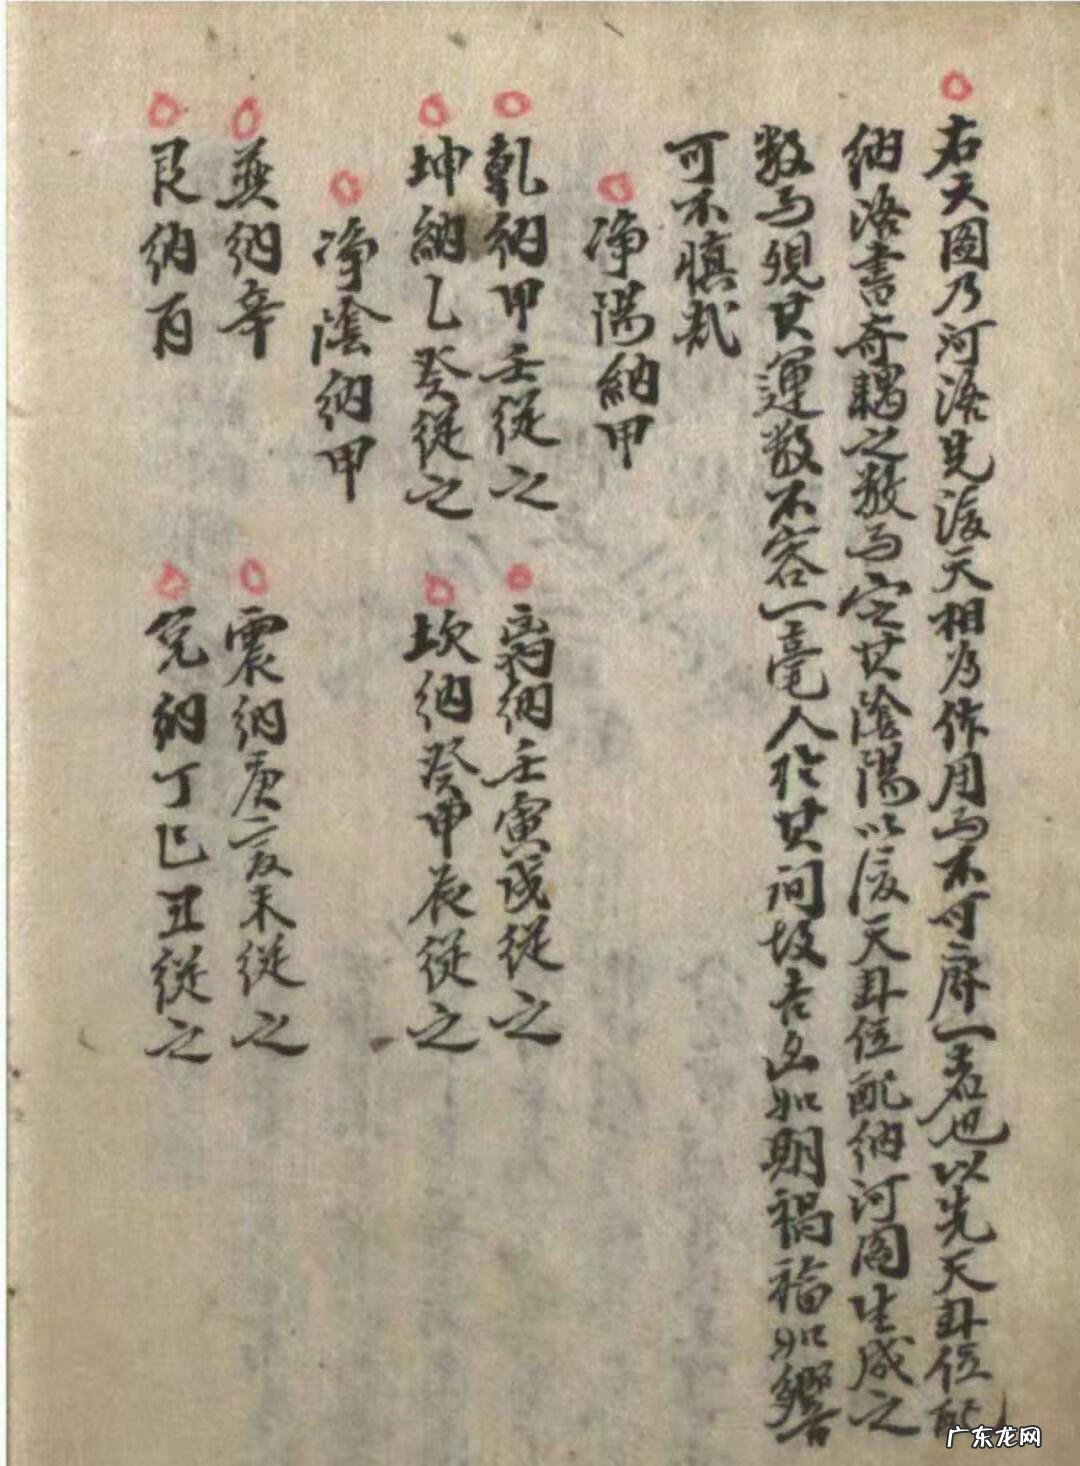 右天圖乃河洛先後天相為作用而不可廢一者也以先天卦位配
納洛書奇耦之數而定其陰陽以後天卦位配納河圖生成之
數而觀其運數不容一毫人於其间故吉凶如期禍福如響
可不慎哉
净陽納甲
乾納甲壬從之
離納壬寅戌從之
坤納乙癸從之
坎納癸申辰從之
净陰納甲
巽納辛
震納庚亥未從之
艮納丙
兌納丁巳丑從之
广东龙网